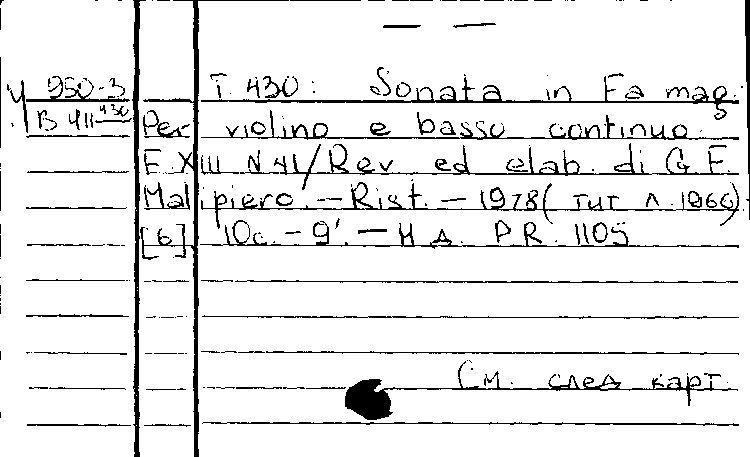 — —
Ч 950-3 Т. 430: Sonata in Fa mag.
В 411 430 Per violino e basso continuo.
F. XIII N 41/Rev. ed elab. di G. F.
Malipiero. — Rist. — 1978 (тит. л. 1966).
[6], 10 с. — 9'. — Н. д. PR. 1105
См. след. карт.